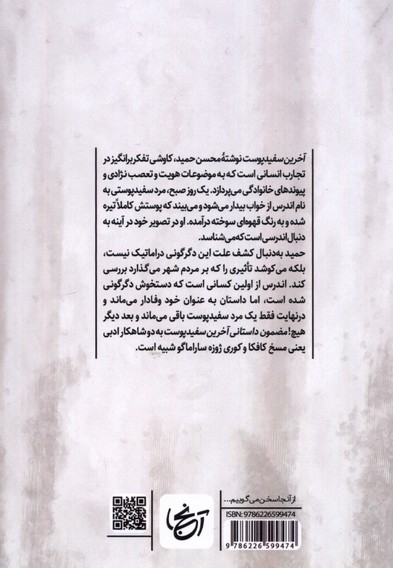 آخرین سفیدپوست نوشتهٔ محسن حمید، کاوشی تفکربرانگیز در
تجارب انسانی است که به موضوعات هویت و تعصب نژادی و
پیوندهای خانوادگی می‌پردازد. یک روز صبح، مرد سفیدپوستی به
نام اندرس از خواب بیدار می‌شود و می‌بیند که پوستش کاملاً تیره
شده و به رنگ قهوه‌ای سوخته درآمده. او در تصویر خود در آینه به
دنبال اندرسی است که می‌شناسد.
حمید به‌دنبال کشف علت این دگرگونی دراماتیک نیست،
بلکه می‌کوشد تأثیری را که بر مردم شهر می‌گذارد بررسی
کند. اندرس از اولین کسانی است که دستخوش دگرگونی
شده است، اما داستان به عنوان خود وفادار می‌ماند و
درنهایت فقط یک مرد سفیدپوست باقی می‌ماند و بعد دیگر
هیچ! مضمون داستانی آخرین سفیدپوست به دو شاهکار ادبی
یعنی مسخ کافکا و کوری ژوزه ساراماگو شبیه است.
از آنجا سخن می‌گوییم...
ISBN: 9786226599474
آنجا
9 786226 599474